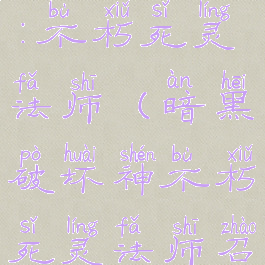 bù xiǔ sǐ líng
:不朽死灵
fǎ shī àn hēi
法师(暗黑
pò huài shén bù xiǔ
破坏神不朽
sǐ líng fǎ shī zhào
死灵法师召